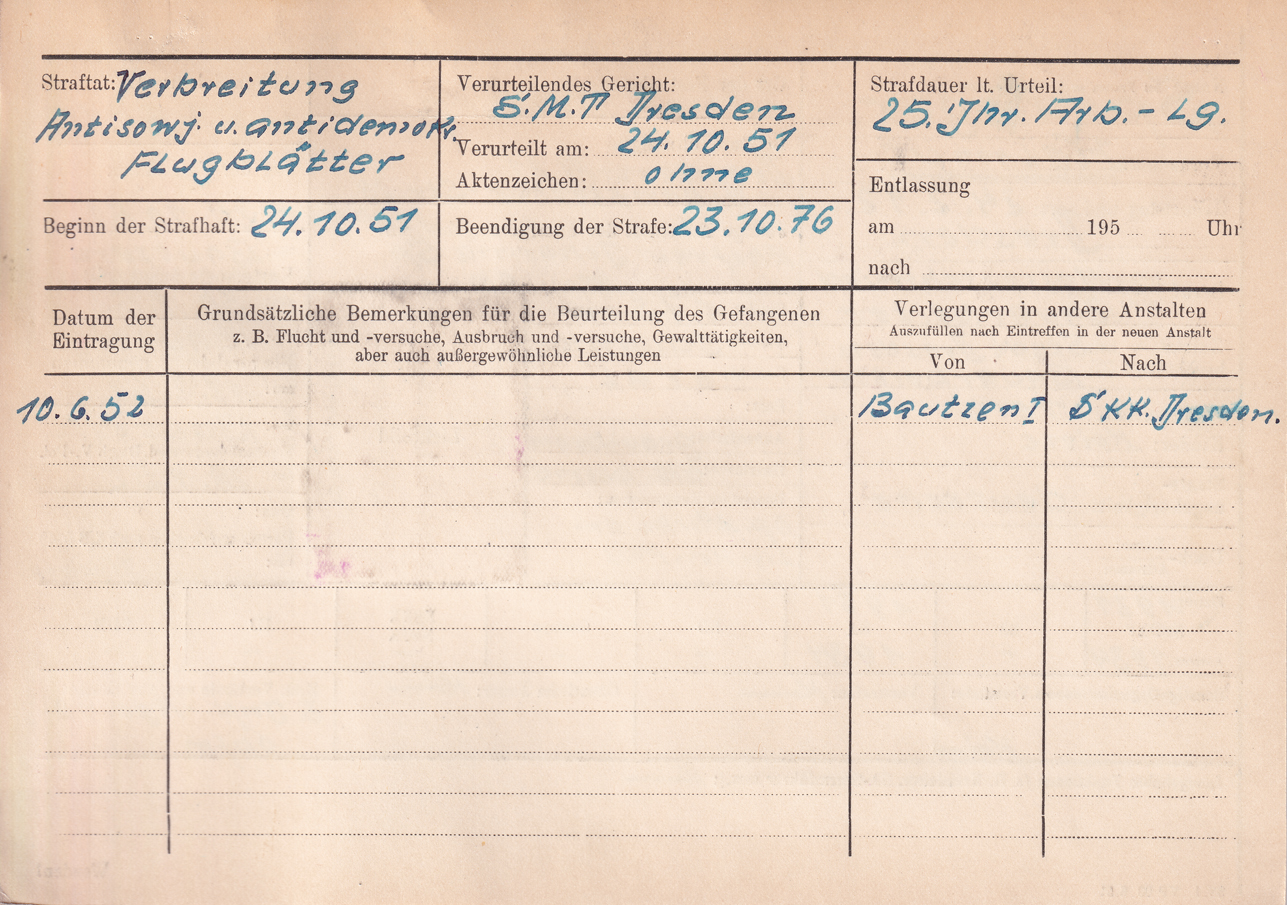 Straftat: Verbreitung
Antisowj. u. antidemokr.
Flugblätter
Verurteilendes Gericht:
S.M.T Dresden
Verurteilt am: 24. 10. 51
Aktenzeichen: ohne
Strafdauer lt. Urteil:
25. Jhr. Arb. - Lg.
Entlassung
am 195 Uhr
nach
Beginn der Strafhaft: 24.10.51
Beendigung der Strafe: 23.10.76
Datum der
Eintragung
Grundsätzliche Bemerkungen für die Beurteilung des Gefangenen
z. B. Flucht und -versuche, Ausbruch und -versuche, Gewalttätigkeiten,
aber auch außergewöhnliche Leistungen
Verlegungen in andere Anstalten
Auszufüllen nach Eintreffen in der neuen Anstalt
Von Nach
10. 6. 52 Bautzen I SKK. Dresden.